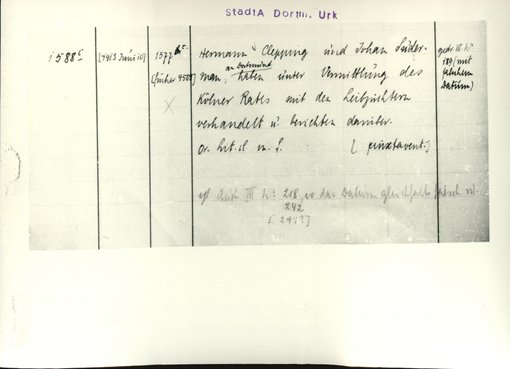 StadtA Dortm. Urk
1588c
[1413 Juni 10]
1577 bc.
[früher 4588]
Hermann Clepping und Johan Lüder-
an Dortmund
man, haben unter Vermittlung des
Kölner Rates mit den Leibzüchtern
verhandelt u. berichten darüber.
Or. Lit. cl. m. S. [ pinxtavent.]
gedr. III No
189 (mit
falschem
Datum)
cf. III No 218, wo das Datum gleichfalls falsch ist.
242
[ 241?]